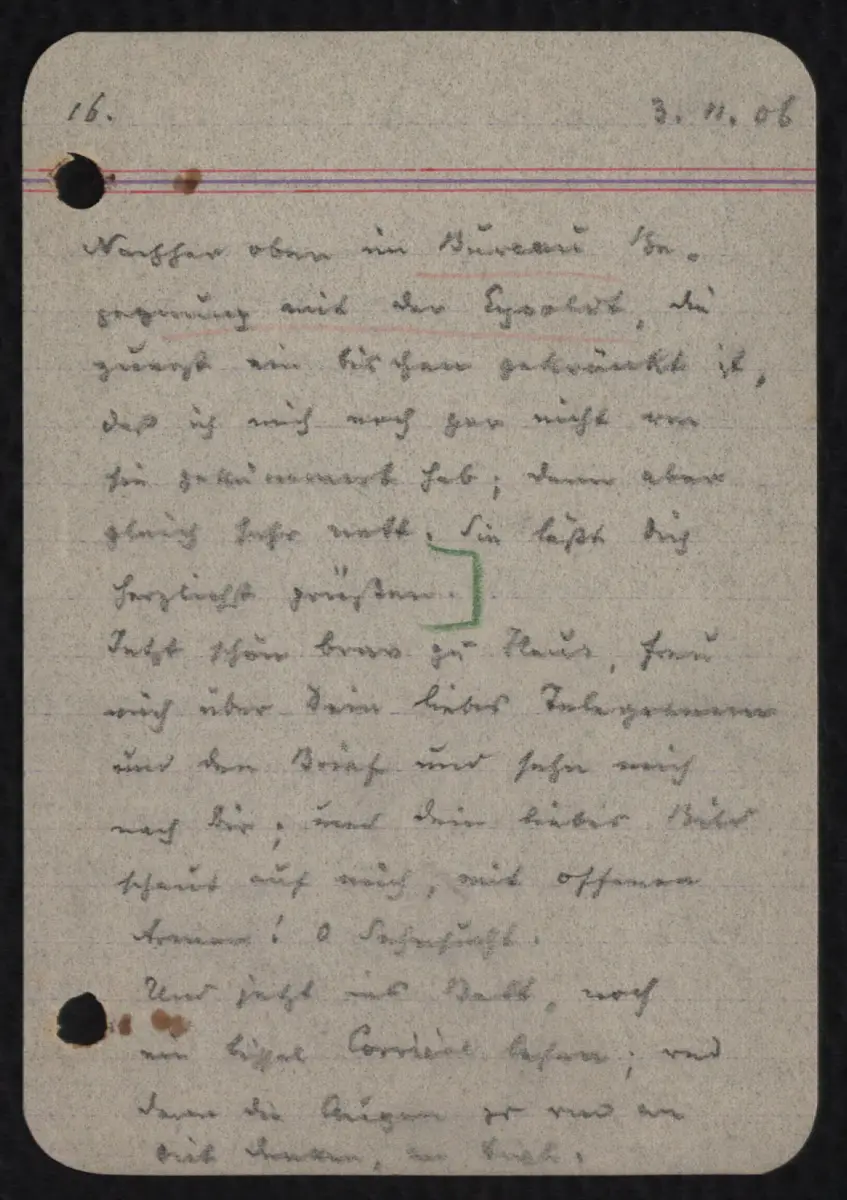 16. 3. 11. 06
Nachher oben im Bureau Be-
gegnung mit der Eysoldt, die
zuerst ein bischen gekränkt ist,
daß ich mich noch gar nicht um
sie gekümmert hab; dann aber
gleich sehr nett. Sie läßt Dich
herzlichst grüßen.
Jetzt schön brav zu Haus, freu
mich über Dein liebes Telegramm
und den Brief und sehn mich
nach Dir; und Dein liebes Bild
schaut auf mich, mit offenen
Armen! O Sehnsucht.
Und jetzt ins Bett, noch
ein bissel lesen; und
dann die Augen zu und an
Dich denken, an Dich.